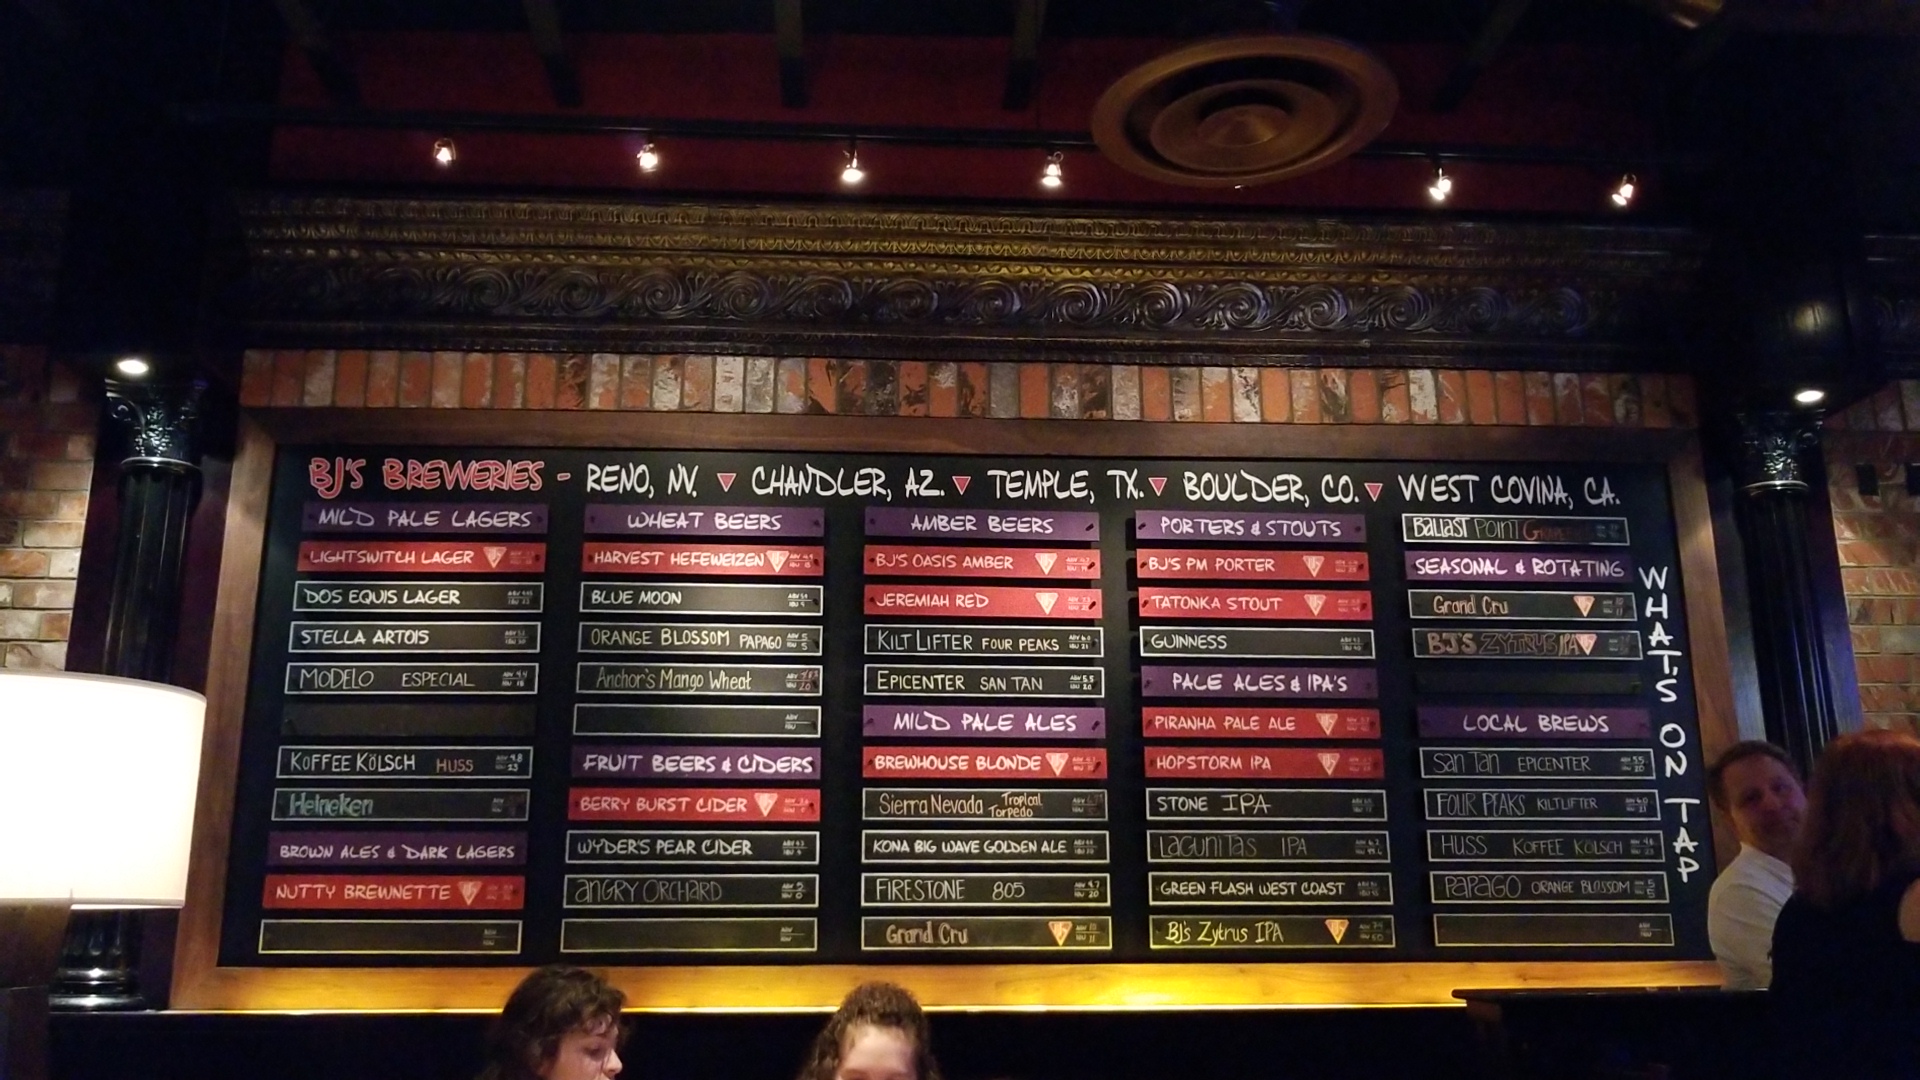 BJ'S BREWERIES - RENO, NV. CHANDLER, AZ. TEMPLE, TX. BOULDER, CO. WEST COVINA, CA.
MILD PALE LAGERS
LIGHTSWITCH LAGER
DOS EQUIS LAGER
STELLA ARTOIS
MODELO ESPECIAL
KOFFEE KÖLSCH HUSS
Heineken
BROWN ALES & DARK LAGERS
NUTTY BREWNETTE
WHEAT BEERS
HARVEST HEFEWEIZEN
BLUE MOON
ORANGE BLOSSOM PAPAGO
Anchor's Mango Wheat
FRUIT BEERS & CIDERS
BERRY BURST CIDER
WYDER'S PEAR CIDER
ANGRY ORCHARD
AMBER BEERS
BJ'S OASIS AMBER
JEREMIAH RED
KILT LIFTER FOUR PEAKS
EPICENTER SAN TAN
MILD PALE ALES
BREWHOUSE BLONDE
Sierra Nevada Tropical Torpedo
KONA BIG WAVE GOLDEN ALE
FIRESTONE 805
Grand Cru
PORTERS & STOUTS
BJ'S PM PORTER
TATONKA STOUT
GUINNESS
PALE ALES & IPA'S
PIRANHA PALE ALE
HOPSTORM IPA
STONE IPA
LAGUNITAS IPA
GREEN FLASH WEST COAST
BJ's Zytrus IPA
BALLAST POINT
SEASONAL & ROTATING
Grand Cru
BJ'S ZYTRUS IPA
LOCAL BREWS
San Tan EPICENTER
FOUR PEAKS KILTLIFTER
HUSS KOFFEE KOLSCH
PAPAGO ORANGE BLOSSOM
WHAT'S ON TAP